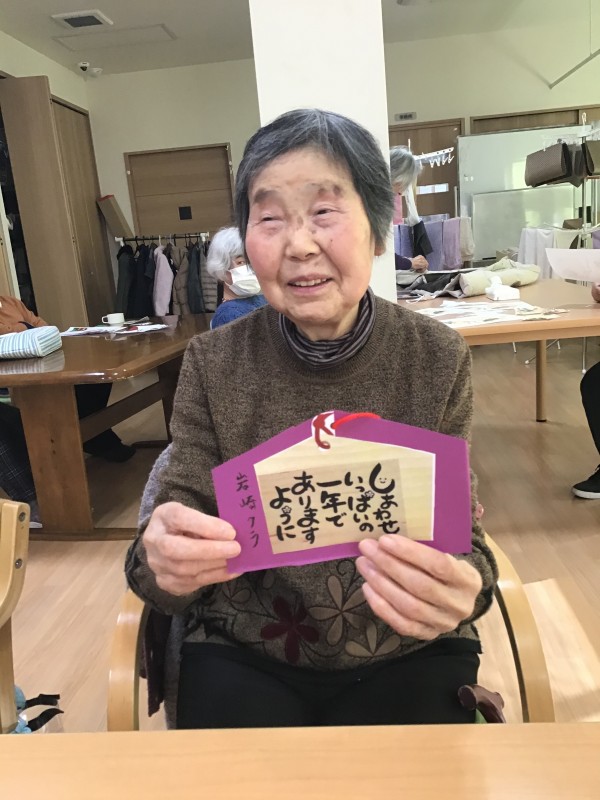 しあわせ
いっぱいの
一年で
あります
ように
岩崎クラ